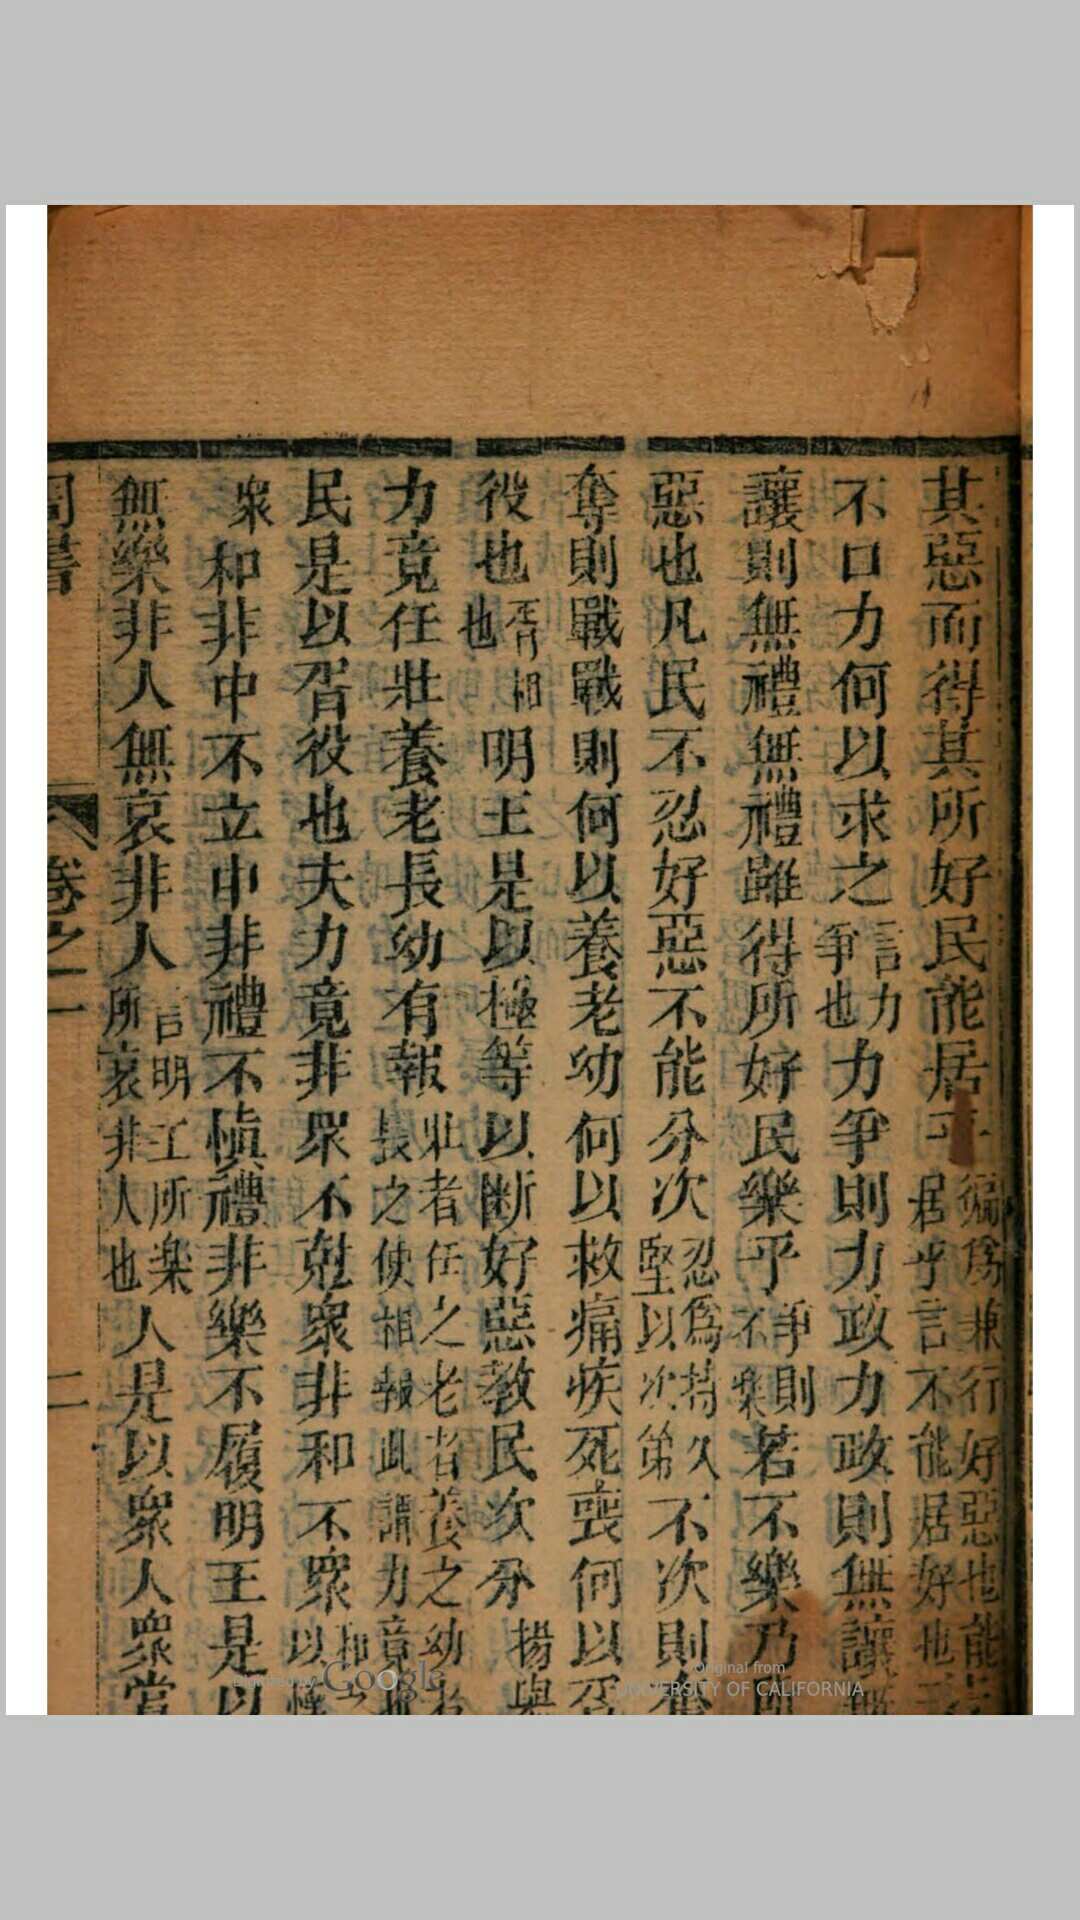 其惡而得其所好民能居乎徧爲兼行好惡也能居乎言不能居好也
不口力何以求之言力爭也力爭則力政力政則無讓
讓則無禮無禮雖得所好民樂乎爭則不樂若不樂乃
惡也凡民不忍好惡不能分次忍爲持久堅以次第不次則奪
奪則戰戰則何以養老幼何以救痛疾死喪何以胥
役也胥相也明王是以極等以断好惡教民次分揚與
力竟任壯養老長幼有報壯者任之老者養之幼者長之使相報此謂力竟也
民是以胥役也夫力竟非眾不尅眾非和不眾和之以極
眾和非中不立中非禮不慎禮非樂不履明王是以
無樂非人無哀非人言明王所樂所哀非人也人是以眾人眾賞
周書 卷之一 二
Digitized by Google
Original from
UNIVERSITY OF CALIFORNIA